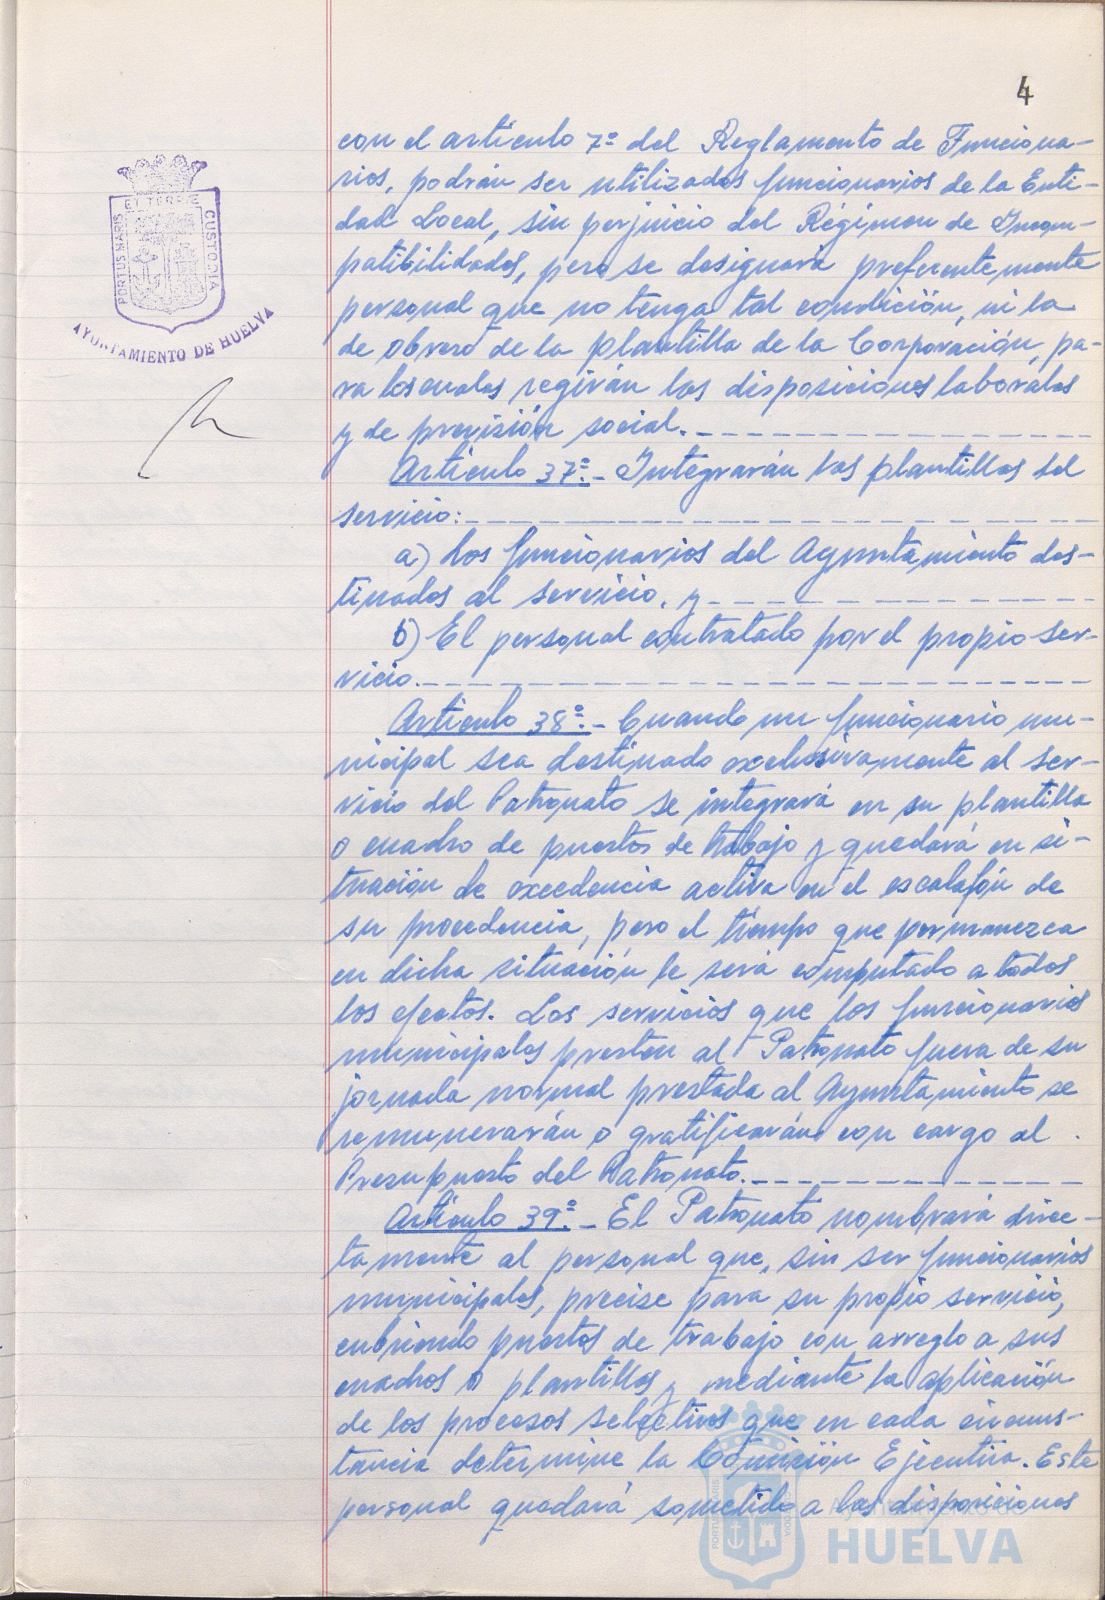 4
con el artículo 7º del Reglamento de Funciona-
rios, podrán ser utilizados funcionarios de la Enti-
dad Local, sin perjuicio del Régimen de Incom-
patibilidades, pero se designará preferentemente
personal que no tenga tal condición, ni la
de obrero de la plantilla de la Corporación, pa-
ra los cuales regirán las disposiciones laborales
y de previsión social.
Artículo 37º.- Integrarán las plantillas del
servicio:
a) Los funcionarios del Ayuntamiento des-
tinados al servicio, y
b) El personal contratado por el propio ser-
vicio.
Artículo 38º.- Cuando un funcionario mu-
nicipal sea destinado exclusivamente al ser-
vicio del Patronato se integrará en su plantilla
o cuadro de puestos de trabajo y quedará en si-
tuación de excedencia activa en el escalafón de
su procedencia, pero el tiempo que permanezca
en dicha situación le será computado a todos
los efectos. Los servicios que los funcionarios
municipales presten al Patronato fuera de su
jornada normal prestada al Ayuntamiento se
remunerarán o gratificarán con cargo al
Presupuesto del Patronato.
Artículo 39º.- El Patronato nombrará direc-
tamente al personal que, sin ser funcionarios
municipales, precise para su propio servicio,
cubriendo puestos de trabajo con arreglo a sus
cuadros o plantillas y mediante la aplicación
de los procesos selectivos que en cada circuns-
tancia determine la Comisión Ejecutiva. Este
personal quedará sometido a las disposiciones
PORTUS MARIS ET TERRÆ CUSTODIA
AYUNTAMIENTO DE HUELVA
Ayuntamiento de
HUELVA